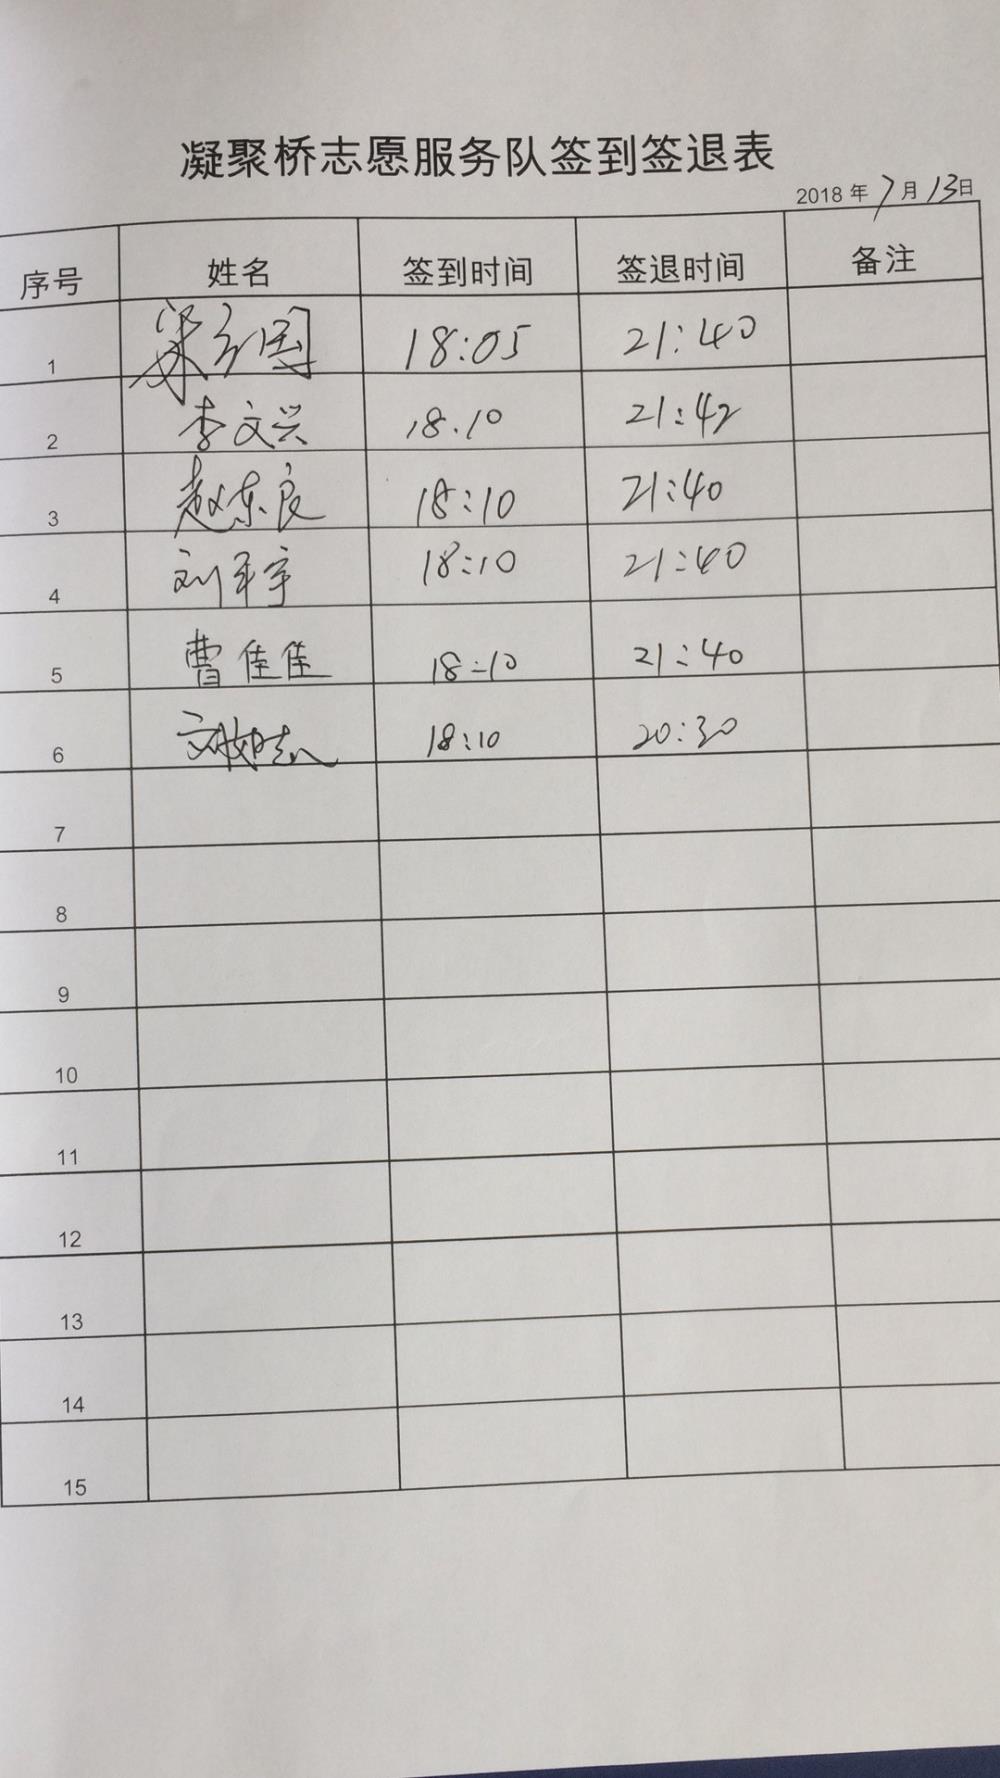 凝聚桥志愿服务队签到签退表
2018 年 7 月 13 日
序号 姓名 签到时间 签退时间 备注
1 18:05 21:40
2 李文兴 18.10 21:42
3 赵东良 18:10 21:40
4 18:10 21:40
5 曹佳佳 18:10 21:40
6 18:10 20:30
7
8
9
10
11
12
13
14
15